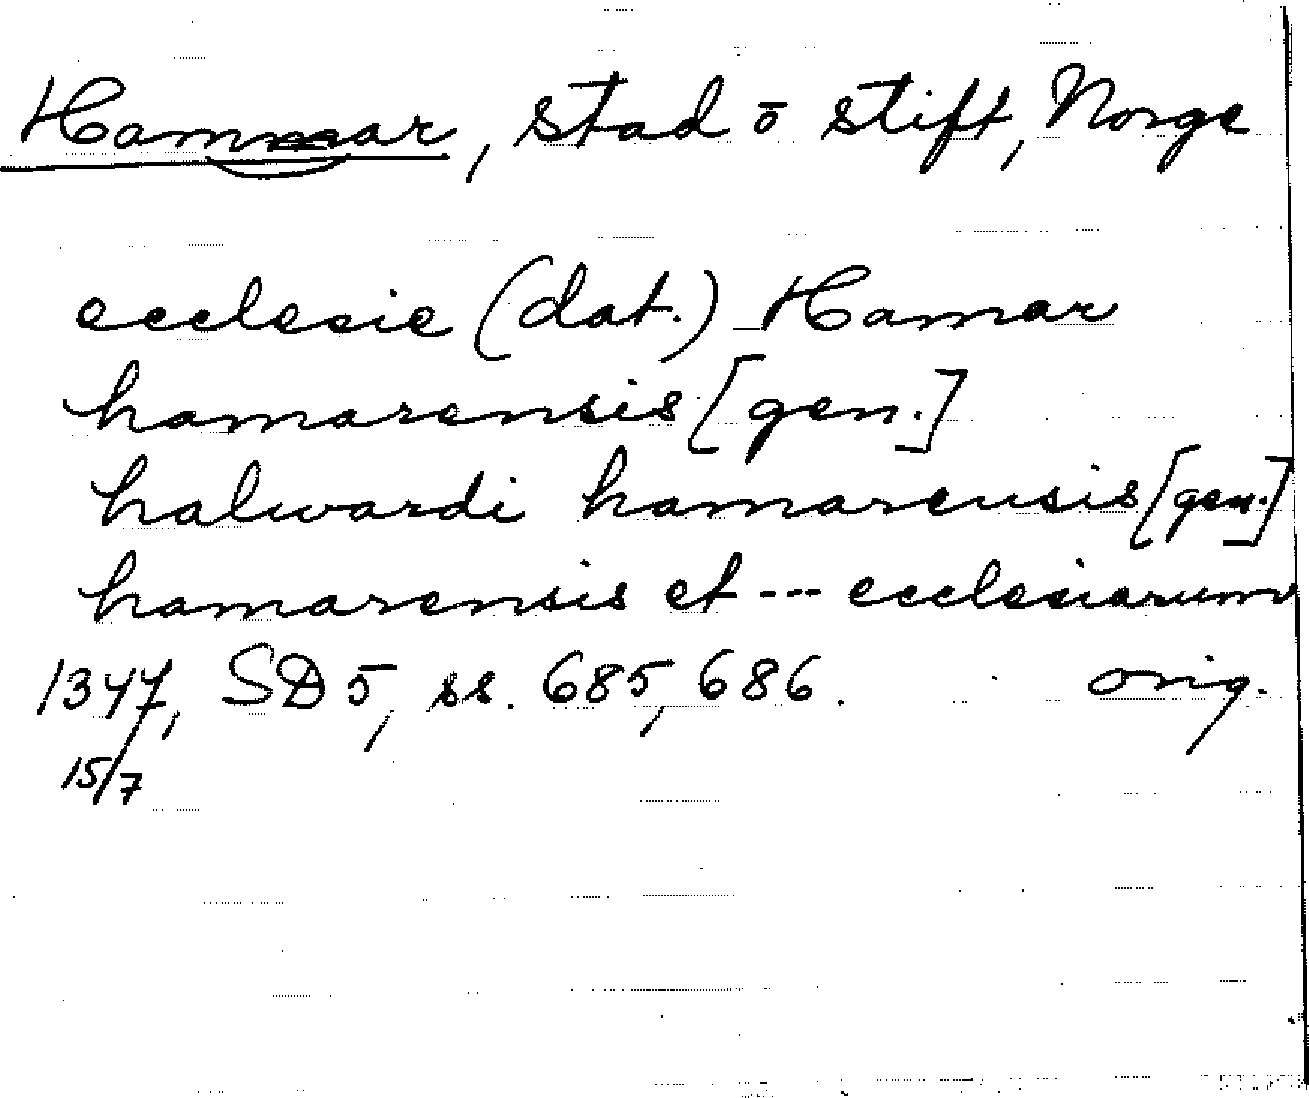 Hammar, stad ō stift, Norge
ecclesie (dat.) Hamar
hamarensis [gen.]
halwardi hamarensis [gen.]
hamarensis et --- ecclesiarum
1347, SD 5, ss. 685, 686. orig.
15/7